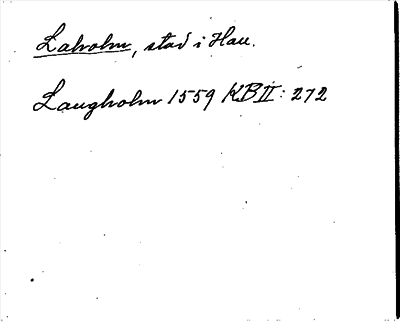 Laholm, stad i Hall.
Laugholm 1559 KB II: 272